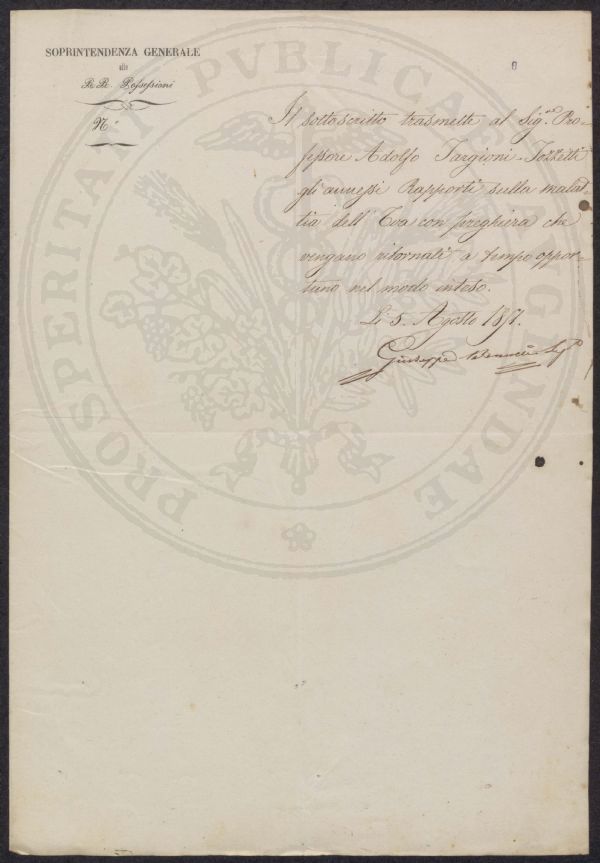 SOPRINTENDENZA GENERALE
alle
RR. Possessioni
N.°
6
Il sottoscritto trasmette al Sig.r Pro-
fessore Adolfo Targioni-Tozzetti
gli annessi Rapporti sulla malat-
tia dell' Uva con preghiera che
vengano ritornati a tempo oppor-
tuno nel modo inteso.
Li 5. Agosto 1851.
Giuseppe Seg.o
PROSPERITATI PVBLICAE AVGENDAE